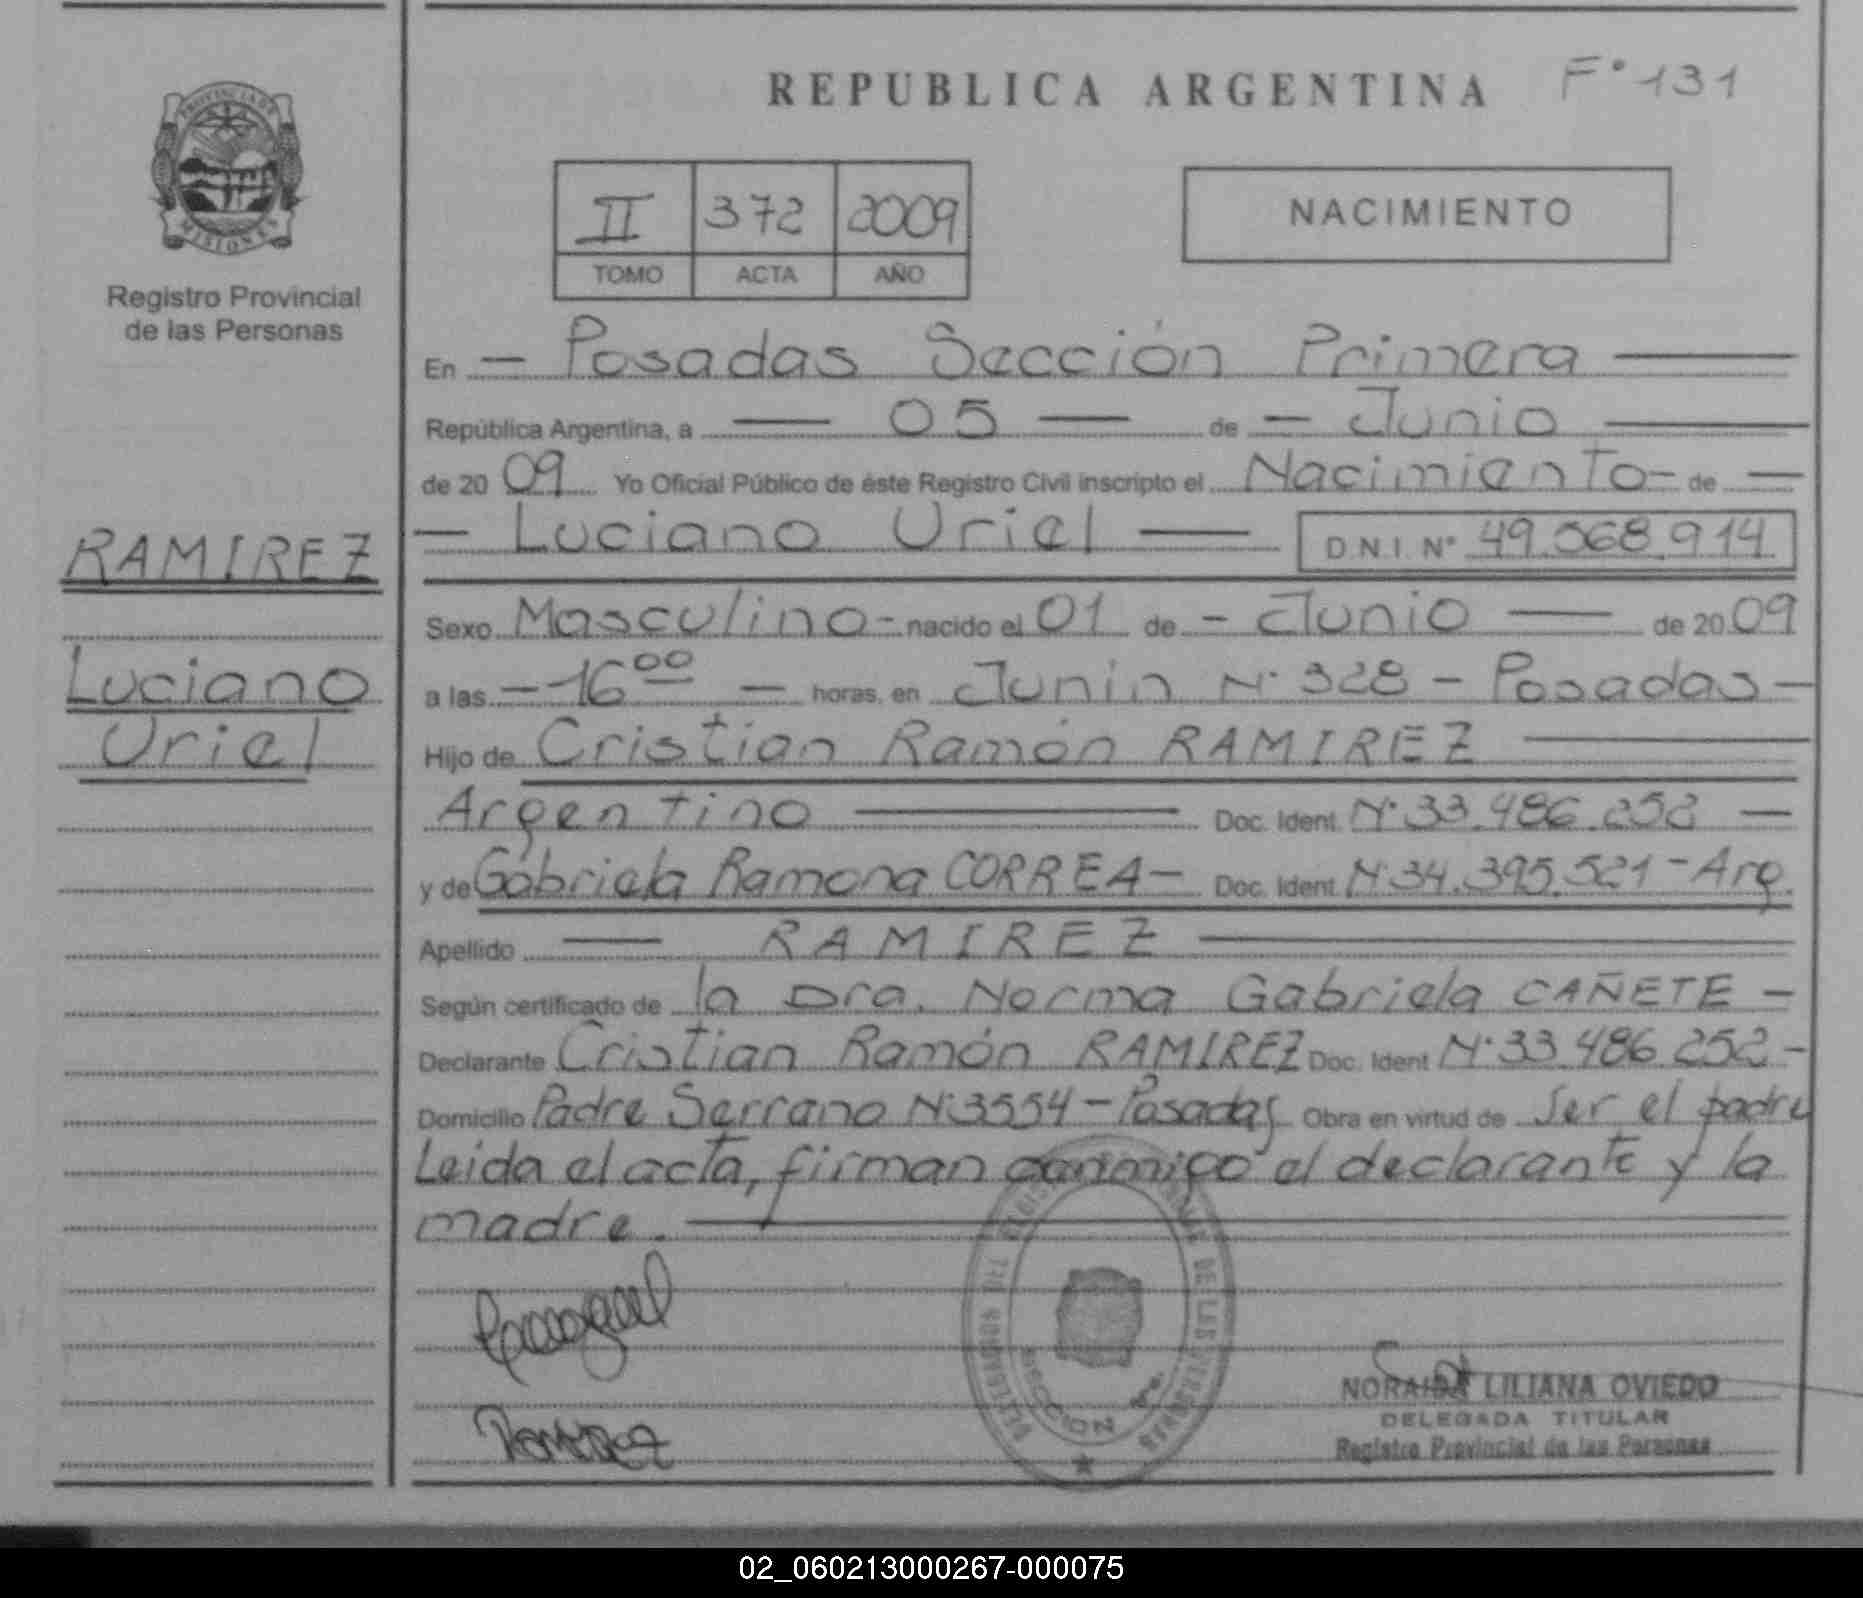 REPUBLICA ARGENTINA F° 131
PROVINCIA DE
MISIONES
Registro Provincial
de las Personas
II 372 2009
TOMO ACTA AÑO
NACIMIENTO
En — Posadas Sección Primera —
República Argentina, a — 05 — de — Junio —
de 2009 Yo Oficial Público de éste Registro Civil inscripto el Nacimiento - de —
— Luciano Uriel — D.N.I. N° 49.568.914
RAMIREZ
Luciano
Uriel
Sexo Masculino - nacido el 01 de - Junio — de 2009
a las — 16 00 — horas, en Junín N° 328 - Posadas -
Hijo de Cristian Ramón RAMIREZ —
Argentino — Doc. Ident. N° 33.486.252 —
y de Gabriela Ramona CORREA - Doc. Ident. N° 34.395.521 - Arg.
Apellido — RAMIREZ —
Según certificado de la Dra. Norma Gabriela CAÑETE -
Declarante Cristian Ramón RAMIREZ Doc. Ident N° 33.486.252 -
Domicilio Padre Serrano N° 3554 - Posadas Obra en virtud de Ser el padre
Leida el acta, firman conmigo el declarante y la
madre. —
SECCION 1ra.
DE LAS PERSONAS
Ramirez
NORAIDA LILIANA OVIEDO
DELEGADA TITULAR
Registro Provincial de las Personas
02_060213000267-000075